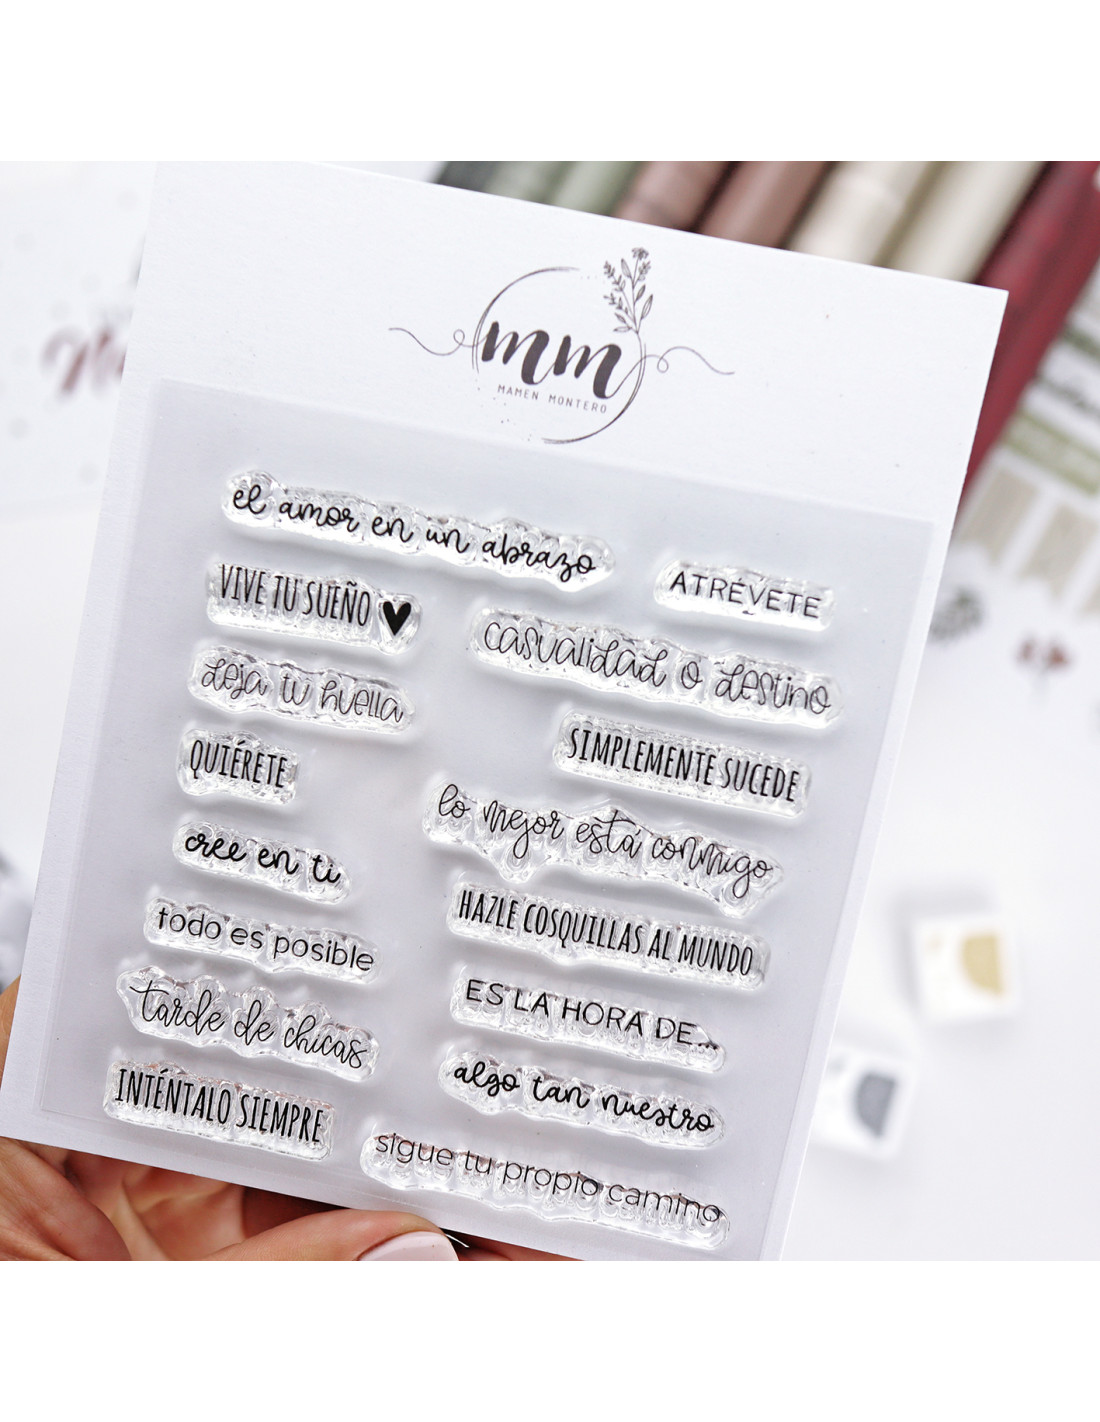 mm
MAMEN MONTERO
el amor en un abrazo
ATRÉVETE
VIVE TU SUEÑO
casualidad o destino
deja tu huella
SIMPLEMENTE SUCEDE
QUIÉRETE
lo mejor está conmigo
cree en ti
HAZLE COSQUILLAS AL MUNDO
todo es posible
ES LA HORA DE...
tarde de chicas
algo tan nuestro
INTÉNTALO SIEMPRE
sigue tu propio camino